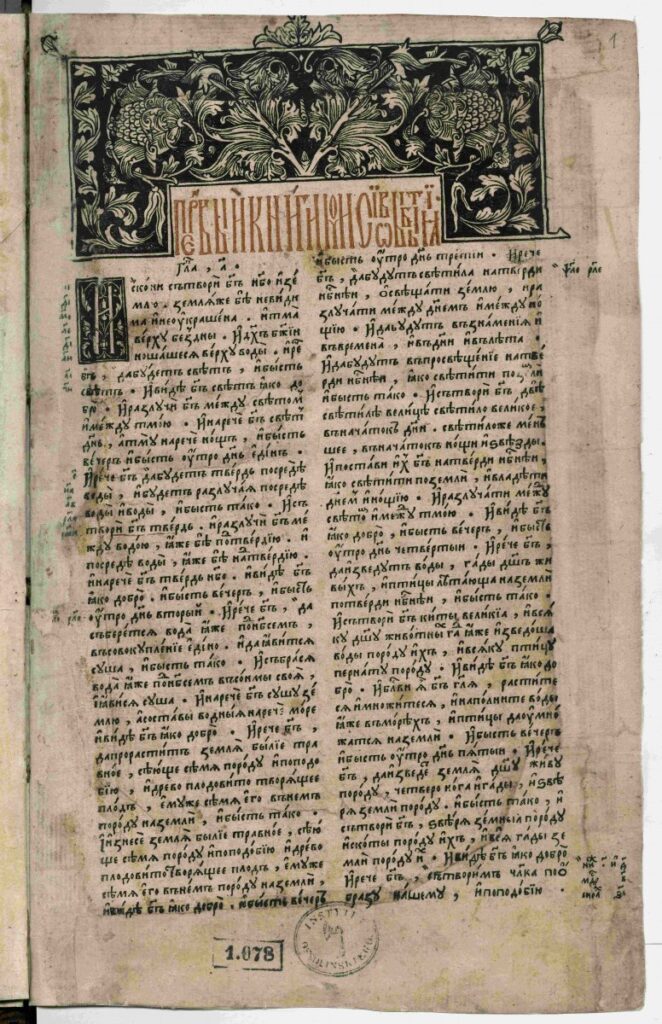 1
ПЕРВЫИ КНИГИ МОИСЕѠВЫ БЫТІА
Гла҃, а҃.
Искони сътвори бг҃ъ нб҃о и зе
млю. земляже бѣ невиди
ма и неоукрашена. и тма
верху бездны. и дх҃ъ бж҃іи
ношашеся верху воды. и рече
бг҃ъ, да будетъ свѣтъ, и бысть
свѣтъ. и видѣ бг҃ъ свѣтъ яко до
бро. и разлучи бг҃ъ между свѣтом
и между тмою. и нарече бг҃ъ свѣтъ
дн҃ь, а тму нарече нощь, и бысть
вечеръ и бысть оутро дн҃ь единъ.
И рече бг҃ъ да будетъ твердь посредѣ
воды, и будетъ разлучая посредѣ
воды и воды, и бысть тако. и сът
вори бг҃ъ твердь. и разлучи бг҃ъ ме
жду водою, яже бѣ под твердію. и
посредѣ воды, яже бѣ над твердію.
и нарече бг҃ъ твердь нб҃о. и видѣ бг҃ъ
яко добро. и бысть вечеръ, и бысть
оутро дн҃ь вторыи. И рече бг҃ъ, да
съберется вода яже под нб҃семъ,
въ совокупленіе едино. и да явится
суша, и бысть тако. и събрася
вода яже под нб҃семъ въ сонмы своя,
и явися суша. и нарече бг҃ъ сушу зе
млю, а съставы водныя нарече море
и видѣ бг҃ъ яко добро. И рече бг҃ъ,
да прорастить земля быліе тра
вное, сѣюще сѣмя породу и подо
бію, и древо плодовито творящее
плодъ, емуже сѣмя его въ немъ
породу на земли, и бысть тако.
и изнесе земля быліе травное, сѣю
ще сѣмя породу и подобію, и древо
плодовито творящее плодъ, емуже
сѣмя его въ немъ породу на земли,
и видѣ бг҃ъ яко добро. и бысть вечеръ
и бысть оутро дн҃ь третіи. И рече
бг҃ъ, да будутъ свѣтила на тверди
нб҃снѣи, освѣщати землю, и ра
злучати между днемъ и между но
щію. и да будутъ въ знаменія и
въ времена, и въ дни и въ лѣта.
и да будутъ въ просвѣщеніе на тве
рди нб҃снѣи, яко свѣтити по земли
и бысть тако. и сътвори бг҃ъ двѣ
свѣтилѣ велицѣ свѣтило великое,
въ начатокъ дни. свѣтило же мень
шее, въ начатокъ нощи и звѣзды.
и постави их бг҃ъ на тверди нб҃снѣи,
яко свѣтити по земли, и владѣти
днемъ и нощію. и разлучати между
свѣтом и между тмою. и видѣ бг҃ъ
яко добро, и бысть вечеръ, и бысть
оутро дн҃ь четвертыи. И рече бг҃ъ,
да изведутъ воды, гады дш҃ъ жи
выхъ, и птицы лѣтающа на земли
по тверди нб҃снѣи, и бысть тако.
и сътвори бг҃ъ киты великія, и вся
ку дш҃у животных гад яже изведоша
воды породу ихъ, и всяку птицу
пернату породу. и видѣ бг҃ъ яко до
бро. и блс҃ви я бг҃ъ гл҃я, растите
ся и множитеся, и наполните воды
яже въ морѣхъ, и птицы да оумно
жатся на земли. и бысть вечеръ
и бысть оутро дн҃ь пятыи. И рече
бг҃ъ, да изведе земля дш҃у живу
породу, четвероногая и гады, и звѣ
ря земли породу. и бысть тако, и
сътвори бг҃ъ, звѣря земны породу
и скоты породу ихъ, и вся гады зе
мли породу их. и видѣ бг҃ъ яко добро
и рече бг҃ъ, сътворим чл҃ка по о
бразу нашему, и по подобію.
1.078